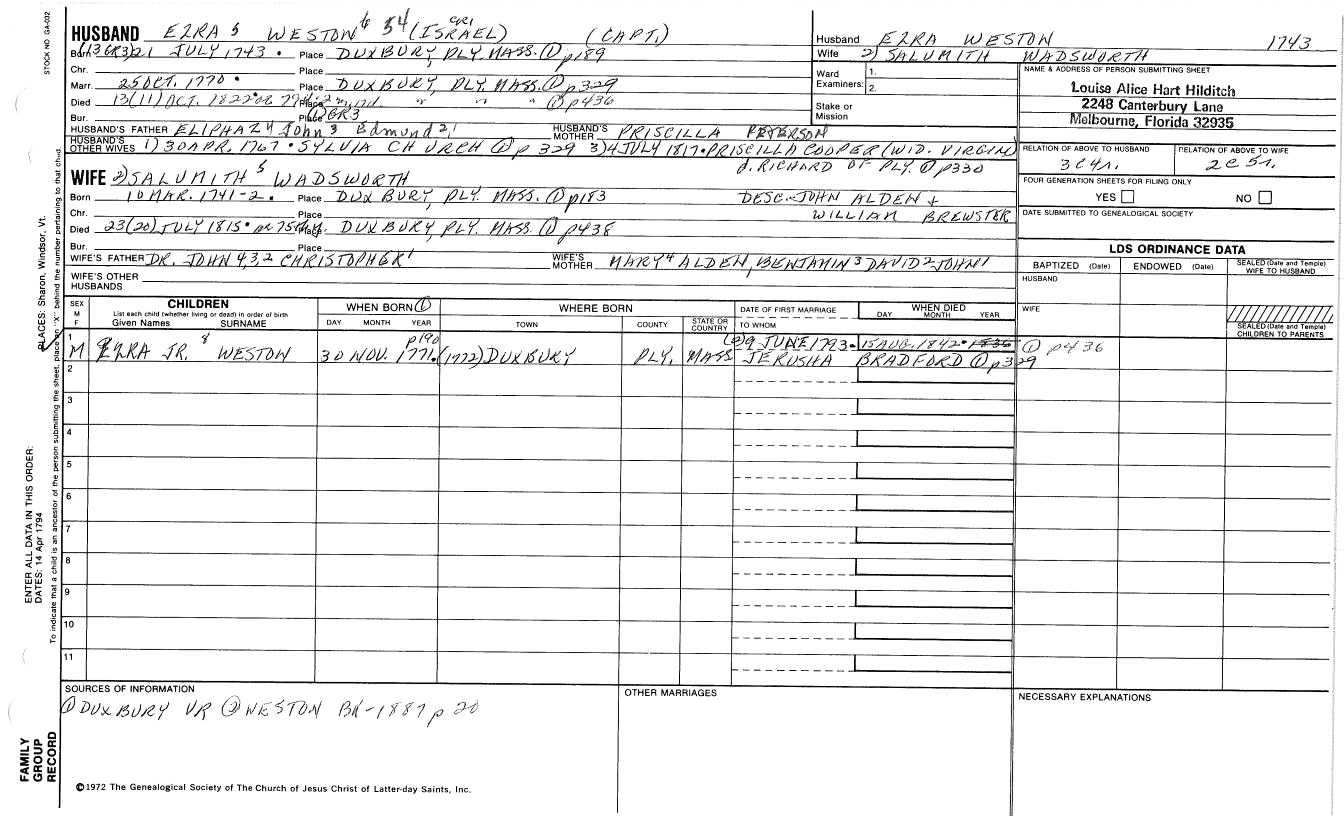 STOCK NO GA-032
HUSBAND EZRA 5 WESTON 6 54 (ISRAEL) CR1 (CAPT.)
Born (13 GR3) 21 JULY 1743 . Place DUXBURY, PLY. MASS. ① p189
Chr. Place
Marr. 25 OCT. 1770 . Place DUXBURY, PLY. MASS. ① p329
Died 13 (11) OCT. 1822 Place " " " ① p436
Bur. Place GR3
HUSBAND'S FATHER ELIPHAZ 4 John 3 Edmund 2,1 HUSBAND'S MOTHER PRISCILLA PETERSON
HUSBAND'S OTHER WIVES 1) 30 APR. 1767 . SYLVIA CHURCH ① p 329 3) 4 JULY 1817 . PRISCILLA COOPER (WID. VIRGIN)
d. RICHARD OF PLY. ① p330
WIFE 2) SALUMITH 5 WADSWORTH
Born 10 MAR. 1741-2 . Place DUXBURY, PLY. MASS. ① p183 DESC. JOHN ALDEN +
Chr. Place WILLIAM BREWSTER
Died 23 (20) JULY 1815 . Place DUXBURY, PLY. MASS. ① p438
Bur. Place
WIFE'S FATHER DR. JOHN 4,3,2 CHRISTOPHER 1 WIFE'S MOTHER MARY 4 ALDEN, BENJAMIN 3 DAVID 2 JOHN 1
WIFE'S OTHER HUSBANDS
Husband EZRA WESTON 1743
Wife 2) SALUMITH WADSWORTH
Ward Examiners: 1.
2.
Stake or Mission
NAME & ADDRESS OF PERSON SUBMITTING SHEET
Louise Alice Hart Hilditch
2248 Canterbury Lane
Melbourne, Florida 32935
RELATION OF ABOVE TO HUSBAND RELATION OF ABOVE TO WIFE
3C4r. 2C5r.
FOUR GENERATION SHEETS FOR FILING ONLY
YES NO
DATE SUBMITTED TO GENEALOGICAL SOCIETY
LDS ORDINANCE DATA
BAPTIZED (Date) ENDOWED (Date) SEALED (Date and Temple) WIFE TO HUSBAND
HUSBAND
WIFE
SEALED (Date and Temple) CHILDREN TO PARENTS
SEX M F
CHILDREN
List each child (whether living or dead) in order of birth
Given Names SURNAME
WHEN BORN ①
DAY MONTH YEAR
WHERE BORN
TOWN COUNTY STATE OR COUNTRY
DATE OF FIRST MARRIAGE
TO WHOM
WHEN DIED
DAY MONTH YEAR
1 p190 (2) 9 JUNE 1793 . 15 AUG. 1842 . 1836 ① p436
M EZRA JR. 8 WESTON 30 NOV. 1771. (1772) DUXBURY PLY. MASS JERUSHA BRADFORD ① p 329
2
3
4
5
6
7
8
9
10
11
SOURCES OF INFORMATION
① DUXBURY VR ② WESTON BK-1887 p 20
OTHER MARRIAGES
NECESSARY EXPLANATIONS
©1972 The Genealogical Society of The Church of Jesus Christ of Latter-day Saints, Inc.
FAMILY GROUP RECORD
ENTER ALL DATA IN THIS ORDER:
DATES: 14 Apr 1794
PLACES: Sharon, Windsor, Vt.
To indicate that a child is an ancestor of the person submitting the sheet, place an "X" behind the number pertaining to that child.